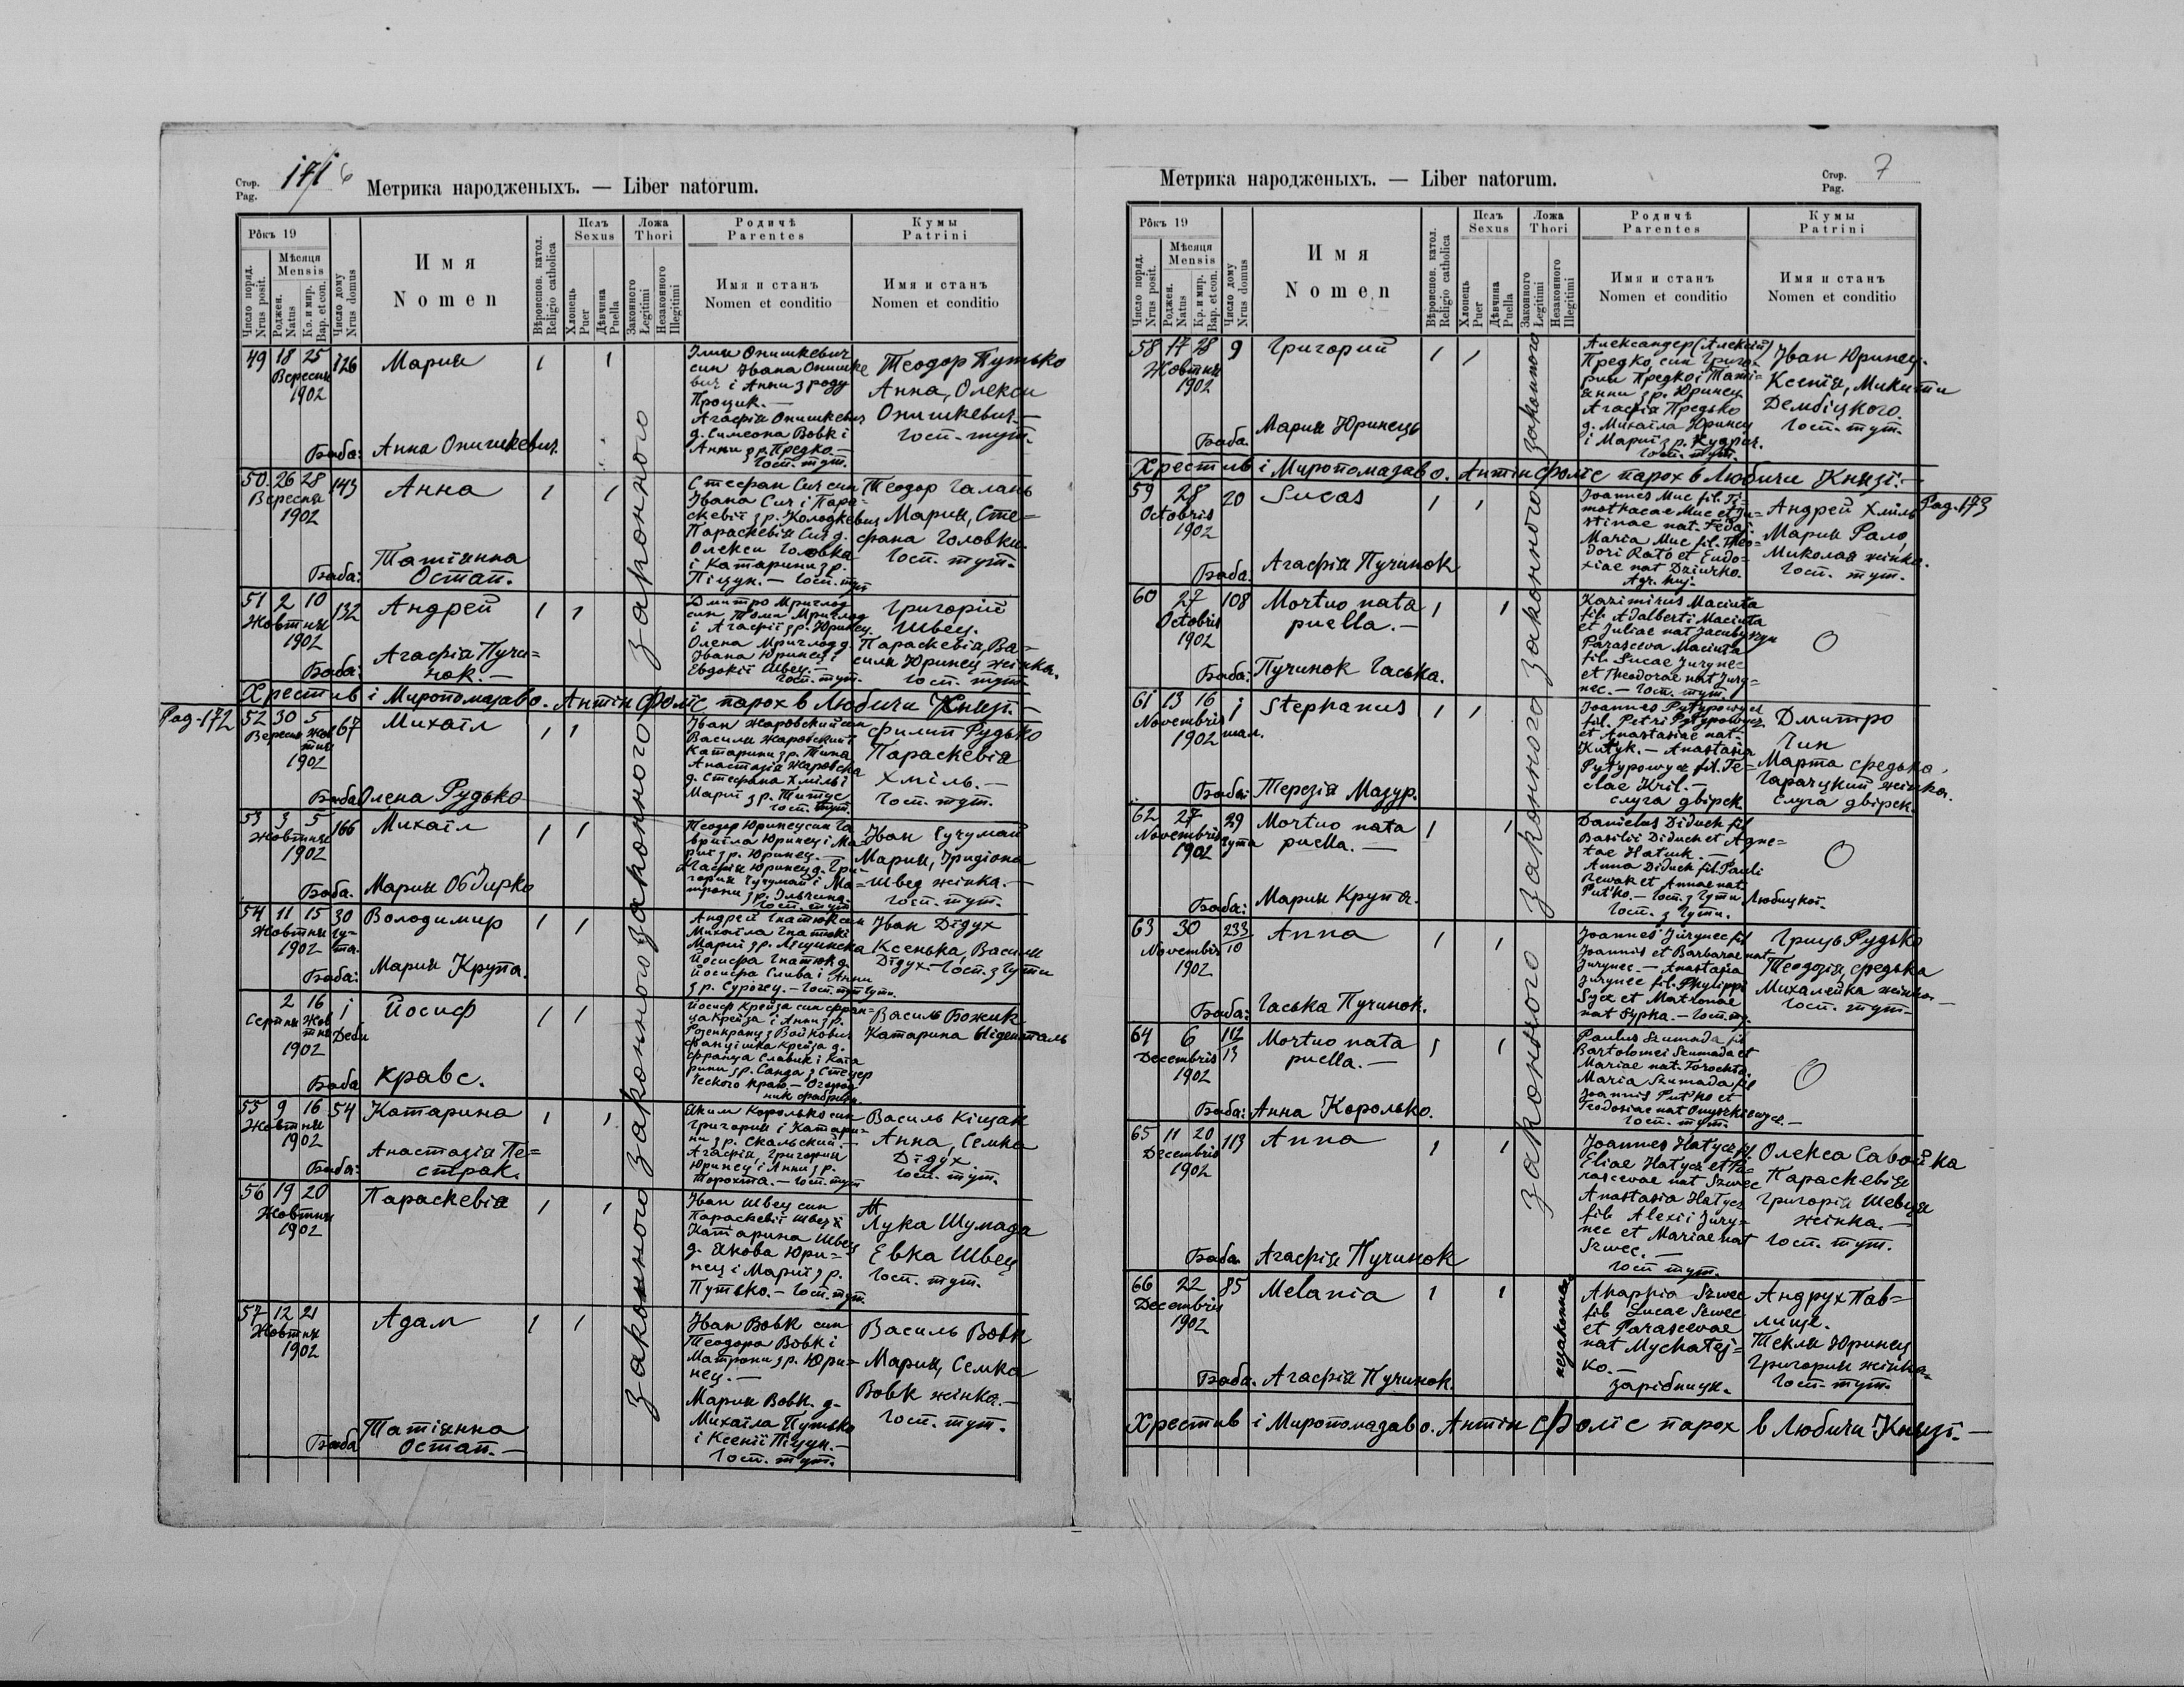 Стор.
Pag.
171 6
Метрика народженыхъ. — Liber natorum.
Рôкъ 19
Число поряд.
Nrus posit.
Мѣсяця
Mensis
Роджен.
Natus
Кр. и мир.
Bap. et con.
Число дому
Nrus domus
И м я
N o m e n
Вѣроиспов. катол.
Religio catholica
Полъ
Sexus
Хлопець
Puer
Дѣвчина
Puella
Ложа
Thori
Законного
Legitimi
Незаконного
Illegitimi
Родичѣ
Parentes
Имя и станъ
Nomen et conditio
Кумы
Patrini
Имя и станъ
Nomen et conditio
49 18 25 126 Мария
Вересня
1902
Баба: Анна Онишкевич.
Ілия Онишкевич
син Ивана Онишке
вич і Анни з роду
Процик. —
Агафія Онишкевич
д. Симеона Вовк і
Анни з р. Предко. —
Госп. тут.
Теодор Путько
Анна, Олекси
Онишкевич. —
Госп. тут.
50. 26 28 143 Анна
Вересня
1902
Баба: Татіянна
Остап.
Стефан Сич син
Ивана Сич і Пара-
скевії з р. Колодкевич
Параскевія Сич д.
Олекси Головка
і Катарини з р.
Піцун. — Госп. тут
Теодор Галань
Мария, Сте=
фана Головки.
Госп. тут.
51 2 10 132 Андрей
Жовтня
1902
Баба: Агафія Пучи=
нок. —
Дмитро Мриглод
син Тома Мриглод
і Агафії з р. Юринец.
Олена Мриглод д.
Ивана Юринец і
Евдокії Швец. —
Госп. тут.
Григорій
Швец.
Параскевія, Ва=
силя Юринец жінка.
Госп. тут.
Хрестив і Миропомазав о. Антін Фоліс парох в Любичи Княз. —
Pag. 172
52 30 5 67 Михаіл
Вересня Жов
тня
1902
Баба Олена Рудько
Іван Жаровский син
Василя Жаровский і
Катарини з р. Тима
Анастазія Жаровска
д. Стефана Хміль і
Марії з р. Титус
Госп. тут.
Филип Рудько
Параскевія
Хміль. —
Госп. тут.
53 3 5 166 Михаіл
Жовтня
1902
Баба. Мария Обдирко
Теодор Юринец син Га
вриіла Юринец і Ма
рії з р. Юринец. —
Агафія Юринец д. Гри-
гория Гучумай і Ма=
трони з р. Ільчина.
Госп. тут
Іван Гучумай
Мария, Іридіона
Швец жінка. —
Госп. тут.
54 11 15 30 Володимир
Жовтня Гу=
1902 та.
Баба: Мария Крупа.
Андрей Гнатюк син
Михаіла Гнатюк і
Марії з р. Ліщинска
Йосифа Гнатюк д.
Йосифа Слива і Анни
з р. Сурогец. — Госп. тут Гути.
Іван Дідух
Ксенька, Василя
Дідух. — Госп. з Гути
2 16 і Йосиф
Серпня Жов
тня Деби
1902
Баба Кравс.
Йосиф Крейза син Фран=
ца Крейза і Анни з р.
Розенкранц з Войкович
Францішка Крейза д.
Франца Славик і Ката
рини з р. Санда з
ческого краю. — Огород
ник фабричн
Василь Божик
Катарина
55 9 16 54 Катарина
Жовтня
1902
Баба: Анастазія Пе=
страк.
Яким Королько син
Григория і Катари=
ни з р. Скальский. —
Агафія, Григория
Юринец і Анни з р.
Торохта. — Госп. тут
Василь Кіщак
Анна, Семка
Дідух
Госп. тут.
56 19 20 Параскевія
Жовтня
1902
Іван Швец син
Параскевії Швец і
Катарина Швец
д. Якова Юри=
нец і Марії з р.
Путько. — Госп. тут.
Лука Шумада
Евка Швец
Госп. тут.
57 12 21 Адам
Жовтня
1902
Баба Татіянна
Остап. —
Іван Вовк син
Теодора Вовк і
Матрони з р. Юри=
нец. —
Мария Вовк. д.
Михаіла Путько
і Ксенії Піцун. —
Госп. тут.
Василь Вовк
Мария, Семка
Вовк жінка. —
Госп. тут.
законного законного законного законного
Метрика народженыхъ. — Liber natorum.
Стор.
Pag.
7
Рôкъ 19
Число поряд.
Nrus posit.
Мѣсяця
Mensis
Роджен.
Natus
Кр. и мир.
Bap. et con.
Число дому
Nrus domus
И м я
N o m e n
Вѣроиспов. катол.
Religio catholica
Полъ
Sexus
Хлопець
Puer
Дѣвчина
Puella
Ложа
Thori
Законного
Legitimi
Незаконного
Illegitimi
Родичѣ
Parentes
Имя и станъ
Nomen et conditio
Кумы
Patrini
Имя и станъ
Nomen et conditio
58 17 28 9 Григорий
Жовтня
1902
Баба. Мария Юринець
Александер (Алексій)
Предко, син Григо-
рия Предко і Таті=
янни з р. Юринец
Агафія Предько
д. Михаіла Юринец
і Марії з р. Кудрач.
Госп. тут.
Іван Юринец.
Ксенія, Микити
Дембіцкого.
Госп. тут.
Хрестив і Миропомазав о. Антін Фоліс парох в Любичи Князі. —
59 28 20 Lucas
Octobris
1902
Баба. Агафія Пучинок
Joannes Muc fil. Ti-
mothacae Muc et Ju-
stinae nat. Fedaj
Maria Muc fil. Theo-
dori Rato et Eudo-
xiae nat Dziurko.
Agr. huj.
Андрей Хміль
Мария Рало,
Миколая жінка.
Госп. тут.
Pag. 173
60 27 108 Mortuo nata
Octobris puella. —
1902
Баба: Пучинок Гаська.
Kazimirus Maciuta
fil. Adalberti Maciuta
et Juliae nat
Parasceva Maciuta
fil. Lucae Jurynec
et Theodorae nat Jury=
nec. — Госп. тут.
O
61 13 16 і Stephanus
Novembris
1902
Баба: Терезія Мазур.
Joannes Pytypowycz
fil. Petri Pytypowycz
et Anastasiae nat.
Kutyk. — Anastasia
Pytypowycz fil. Te=
clae Kril. —
слуга двірск.
Дмитро
Чик
Марта Федька
Гарацкий жінка.
слуга двірск.
62 27 29 Mortuo nata
Novembris Гута puella. —
1902
Баба: Мария Крупа.
Danielus Diduch fil
Basilii Diduch et Agne=
tae Hatiuk. —
Anna Diduch fil. Pauli
Rewak et Annae nat.
Put'ko. — Госп. з Гути Любицкої.
Госп. з Гути.
O
63 30 233/10 Anna
Novembris
1902
Баба: Гаська Пучинок.
Joannes Jurynec fil
Joannis et Barbarae nat
Jurynec. — Anastasia
Jurynec fil. Phylippi
Sycz et Matronae
nat Sypka. — Госп. тут.
Гриць Рудько
Теодозія, Федька
Михалейка жінка. —
Госп. тут.
64 6 112/13 Mortuo nata
Decembris puella. —
1902
Баба: Анна Королько.
Paulus Szumada fil
Bartolomei Szumada et
Mariae nat. Torochta.
Maria Szumada fil
Joannis Put'ko et
Teodosiae nat Onyszkiewycz. —
Госп. тут.
O
65 11 20 113 Anna
Decembris
1902
Баба. Агафія Пучинок
Joannes Hatycz fil
Eliae Hatycz et Pa-
rascevae nat Szwec
Anastasia Hatycz
fil. Alexii Jury=
nec et Mariae nat
Szwec. —
Госп тут.
Олекса Савойка
Параскевія
Григорія Шевця
жінка. —
Госп. тут.
66 22 85 Melania
Decembris
1902
Баба. Агафія Пучинок.
Ahaphia Szwec
fil. Lucae Szwec
et Parascevae
nat Mychatej=
ko. —
зарібниця.
Андрух Пав=
лище.
Текля Юринец
Григория жінка.
Госп. тут.
законного законного законного законного
незаконна
Хрестив і Миропомазав о. Антін Фоліс парох в Любичи Князі. —